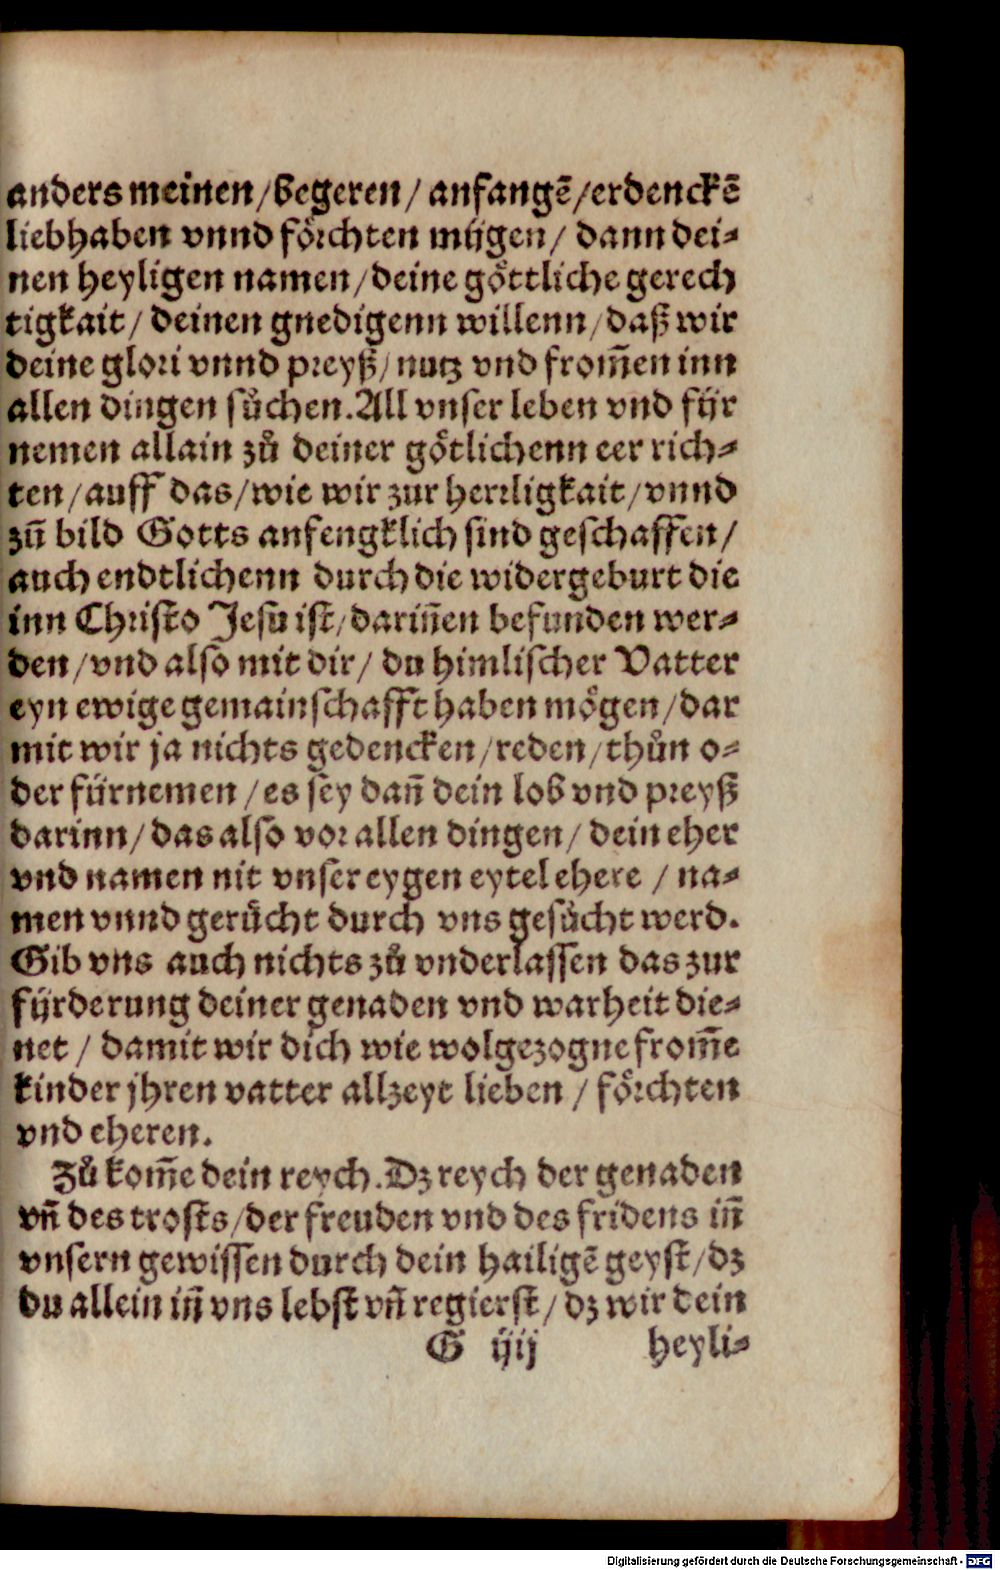 anders meinen/begeren/ anfangẽ/erdenckẽ
liebhaben vnnd förchten mügen/ dann dei⸗
nen heyligen namen/deine göttliche gerech
tigkait/ deinen gnedigenn willenn/daß wir
deine glori vnnd preyß/nutz vnd from̃en inn
allen dingen sůchen.All vnser leben vnd für
nemen allain zů deiner götlichenn eer rich⸗
ten/auff das/wie wir zur herrligkait/vnnd
zů bild Gotts anfengklich sind geschaffen/
auch endtlichenn durch die widergeburt die
inn Christo Jesu ist/dariñen befunden wer⸗
den/vnd also mit dir/ du himlischer Vatter
eyn ewige gemainschafft haben mögen/dar
mit wir ja nichts gedencken/reden/thůn o⸗
der fürnemen/es sey dañ dein lob vnd preyß
darinn/das also vor allen dingen/ dein eher
vnd namen nit vnser eygen eytel ehere / na⸗
men vnnd gerücht durch vns gesůcht werd.
Gib vns auch nichts zů vnderlassen das zur
fürderung deiner genaden vnd warheit die⸗
net / damit wir dich wie wolgezogne from̃e
kinder jhren vatter allzeyt lieben / förchten
vnd eheren.
Zů kom̃e dein reych.Dz reych der genaden
vñ des trosts/der freuden vnd des fridens iñ
vnsern gewissen durch dein hailigẽ geyst/dz
du allein iñ vns lebst vñ regierst/ dz wir dein
G iiij heyli⸗
Digitalisierung gefördert durch die Deutsche Forschungsgemeinschaft - DFG